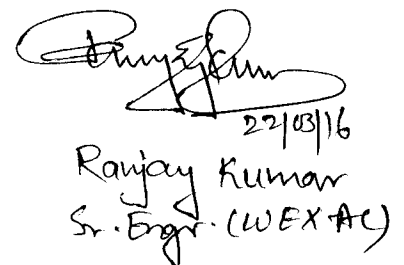 22/03/16
Ranjay Kumar
Sr. Engr. (WEX AC)